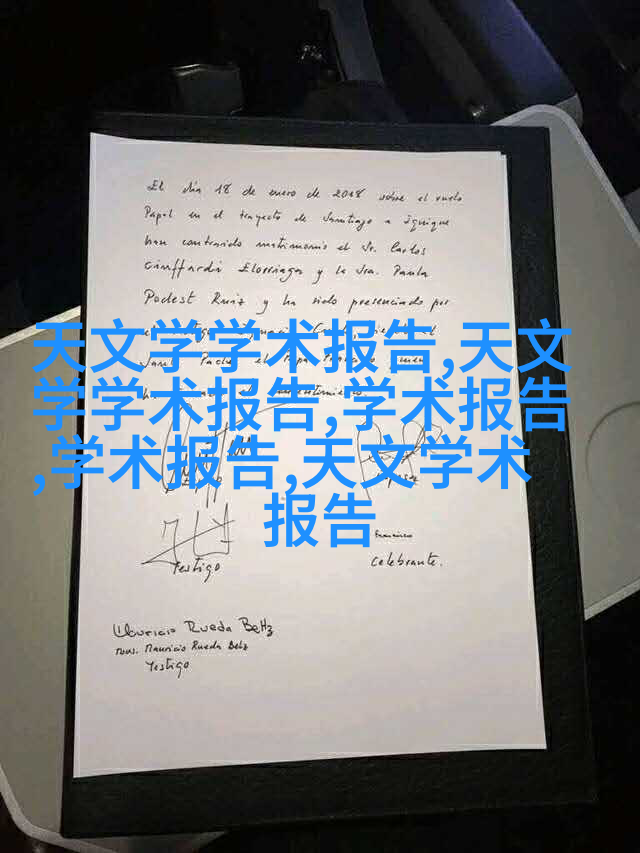 El día 18 de enero de 2018 sobre el vuelo
Papal en el trayecto de Santiago a Iquique
han contraido matrimonio el Sr. Carlos
Ciuffardi Elorriaga y la Sra. Paula
Podest Ruiz y ha sido presenciado por
天文学学术报告,天文
学学术报告,学术报告
,学术报告,天文学学术
报告
Testigo
Francisco
Celebrante.
Mauricio Rueda Beltz
Mons. Mauricio Rueda Beltz
Testigo